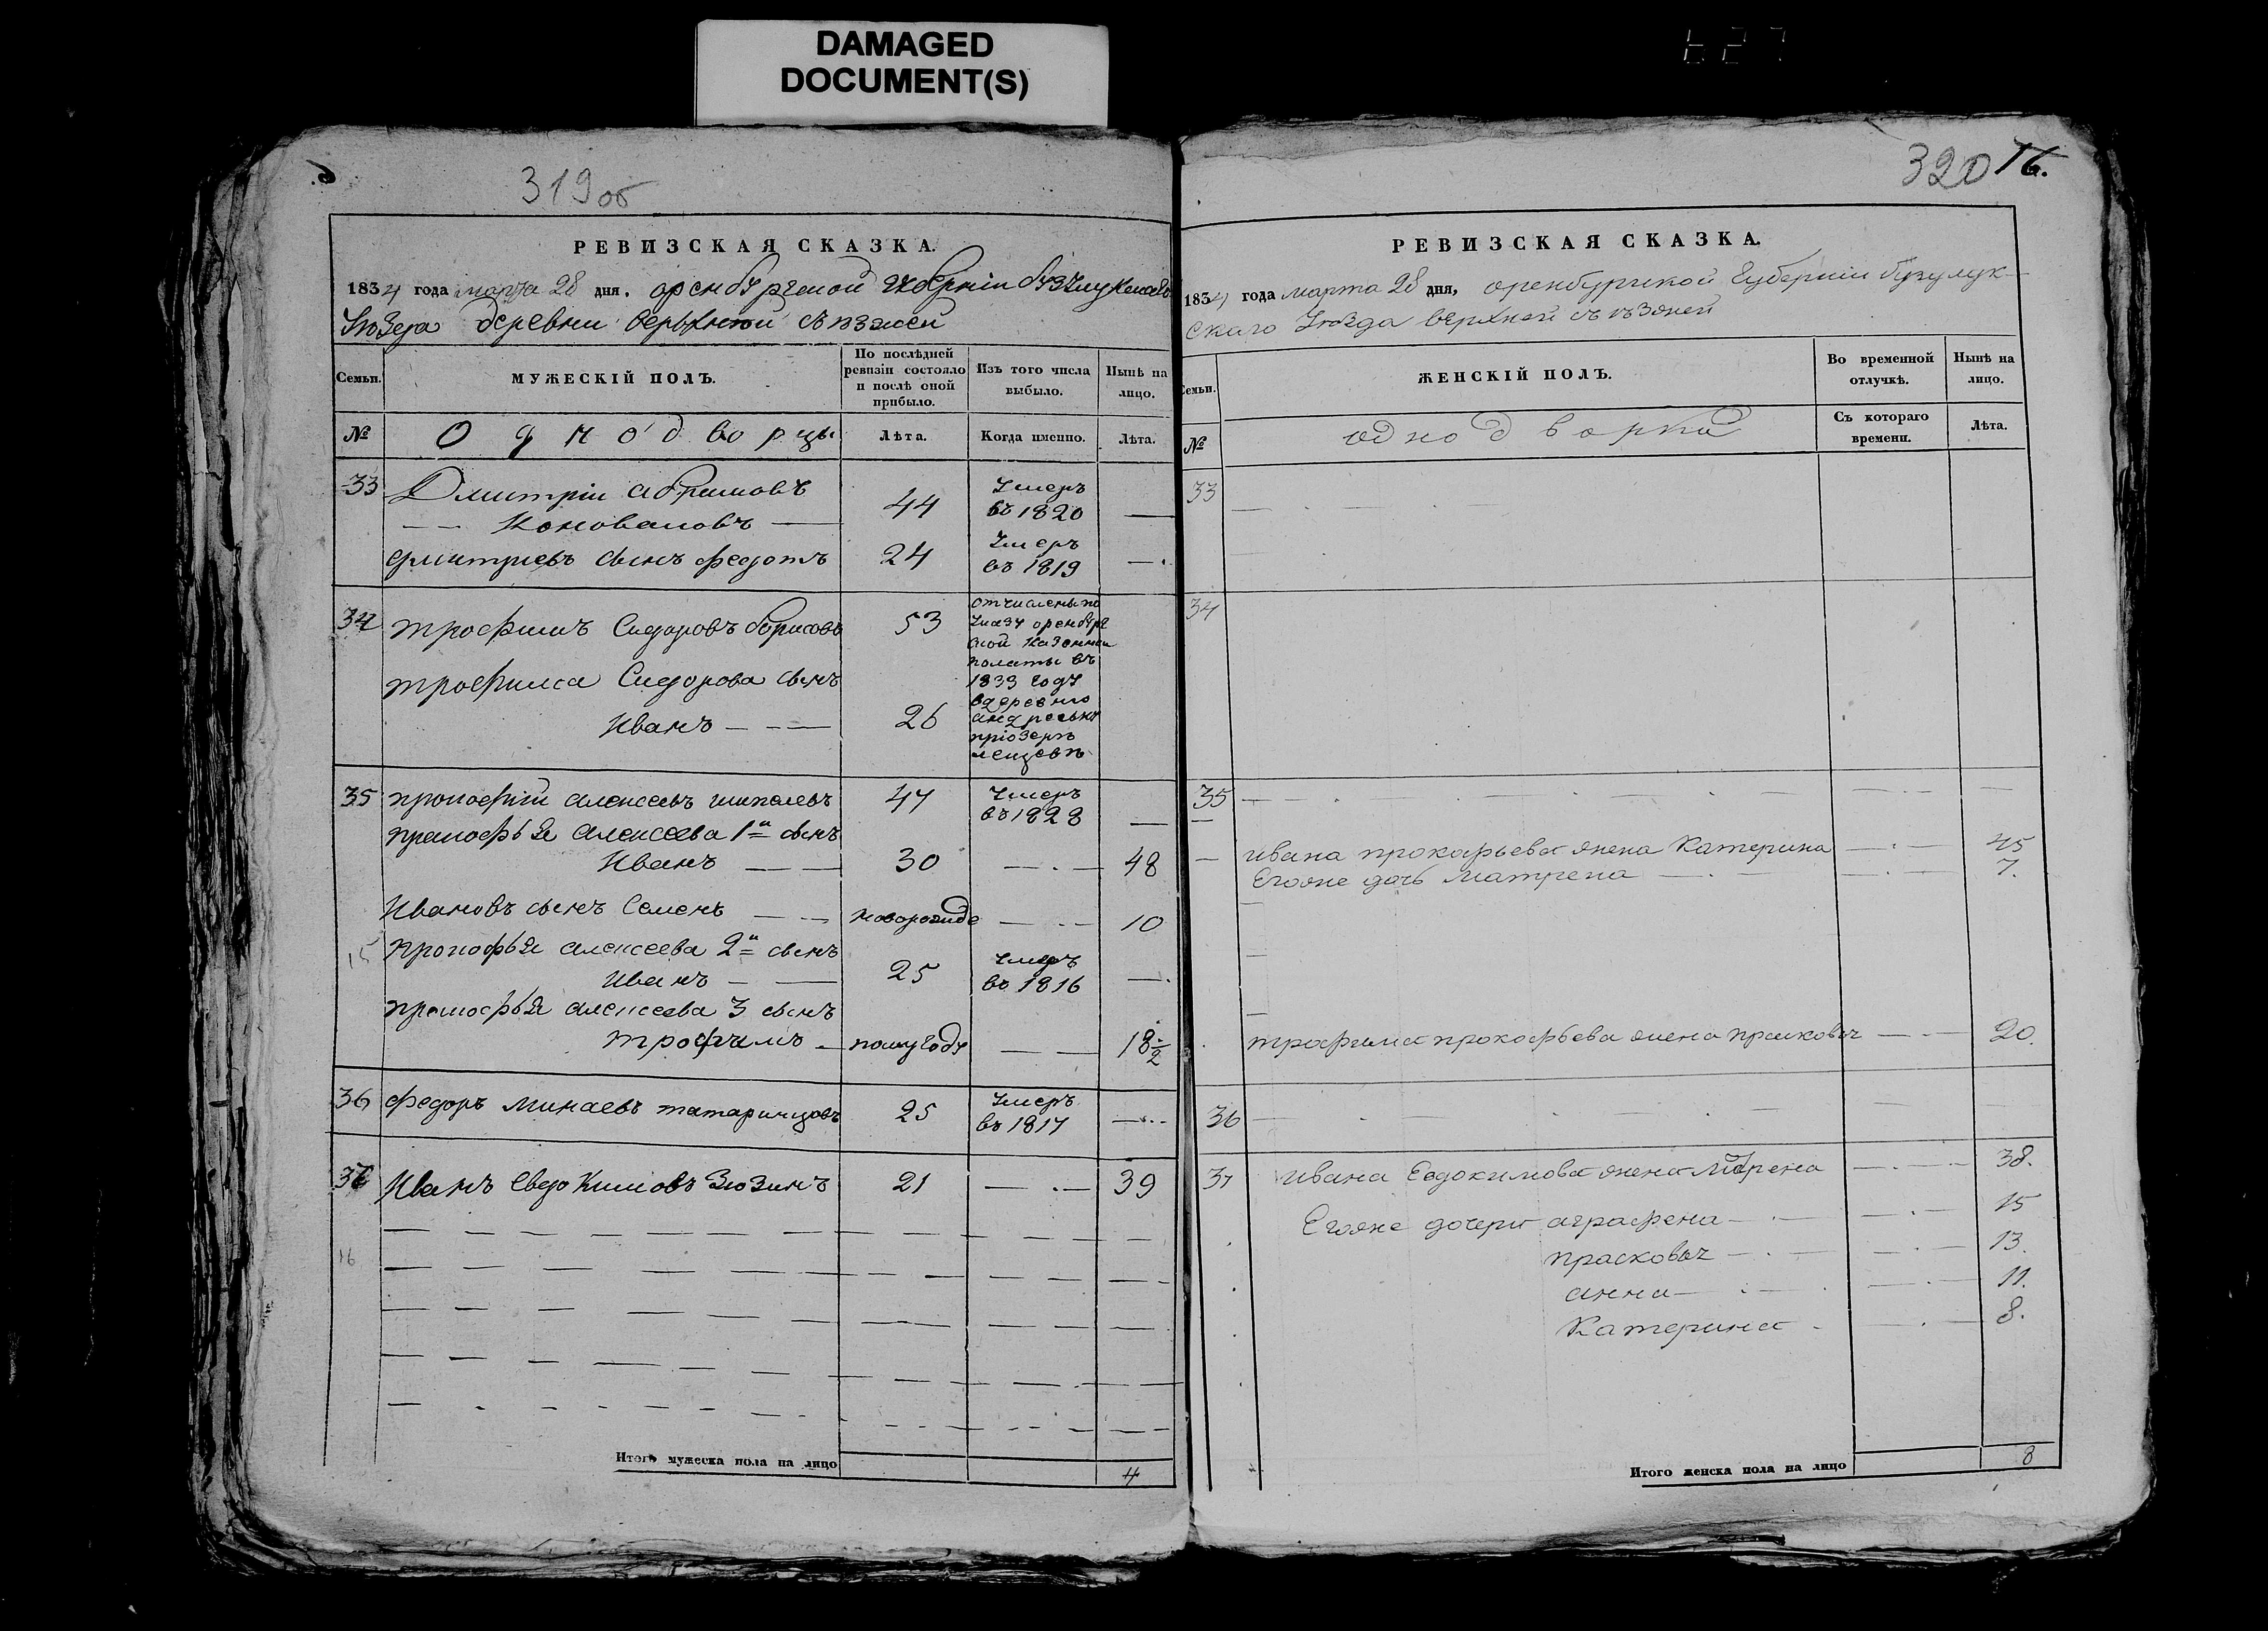 DAMAGED
DOCUMENT(S)
319об
РЕВИЗСКАЯ СКАЗКА.
1834 года марта 28 дня. оренбургской губернiи бузулукскаго
Уѣзда деревни верьхней
Семьи.
МУЖЕСКІЙ ПОЛЪ.
По послѣдней
ревизіи состояло
и послѣ оной
прибыло.
Изъ того числа
выбыло.
Нынѣ на
лицо.
№
Однодворцы
Лѣта.
Когда именно.
Лѣта.
33 Дмитрiи абрамовъ
Коноваловъ 44 Умеръ
въ 1820
Дмитриевъ сынъ федотъ 24 Умеръ
въ 1819
34 трофимъ Сидоровъ борисовъ 53
трофима Сидорова сынъ
Иванъ 26
отчислены по
Указу оренбург
ской Казеннои
полаты въ
1833 году
вдеревню
андреевку
35 прокофiй алексеевъ 47 Умеръ
въ 1828
прокофья алексеева 1й сынъ
Иванъ 30 48
Ивановъ сынъ Семенъ новорожде 10
15
прокофья алексеева 2й сынъ
Иванъ 25 Умеръ
въ 1816
прокофья алексеева 3 сынъ
трофимъ полугоду 18 1/2
36 федоръ Минаевъ татаринцовъ 25 Умеръ
въ 1817
37 Иванъ Евдокимовъ Зюзинъ 21 39
16
Итого мужеска пола на лицо 4
320 16.
РЕВИЗСКАЯ СКАЗКА.
1834 года марта 28 дня, оренбургской Губернiи бузулук-
скаго Уѣзда верхней съѣзжей
Семьи.
ЖЕНСКІЙ ПОЛЪ.
Во временной
отлучкѣ.
Нынѣ на
лицо.
№
однодворки
Съ котораго
времени.
Лѣта.
33
34
35
ивана прокафьева жена Катерина 45
Егоже дочь Матрена 7.
трафима прокофьева жена прасковья 20.
36
37 ивана Евдокимова жена Матрена 38.
Егоже дочери аграфена 15
прасковья 13.
анна 11.
Катерина 8.
Итого женска пола на лицо 8